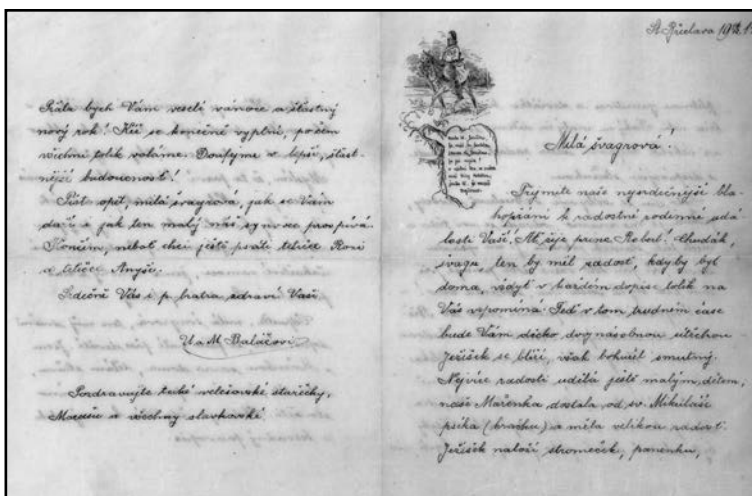 Přála bych Vám veselé vánoce a šťastný
nový rok! Kéž se konečně vyplní, po čem
všichni tolik voláme. Doufejme v lepší, šťast-
nější budoucnost!
Pišt opět, milá švagrová, jak se Vám
daří a jak ten malý náš synovec prospívá.
Končím, neboť chci ještě psáti tetičce Rozi
a tetičce Anyši.
Srdečně Vás i p. bratra zdraví Vaši
U a M Balášovi
Pozdravujte také velešovské stařečky,
a všechny slavkovské
St. Břeclava
Milá švagrová!
Přijměte naše nejsrdečnější bla-
hopřání k radostné rodinné udá
losti Vaší! Ať žije princ Robert! Chudák,
švagr, ten by měl radost, kdyby byl
doma, vždyť v každém dopise tolik na
Vás vzpomíná. Teď v tom trudném čase
bude Vám děcko dvojnásobnou útěchou
Ježíšek se blíží, však bohužel smutný.
Nejvíce radosti udělá ještě malým dětem,
naše Mařenka dostala od sv. Mikuláše
psíka (hračku) a měla velikou radost.
Ježíšek naloží stromeček, panenku,